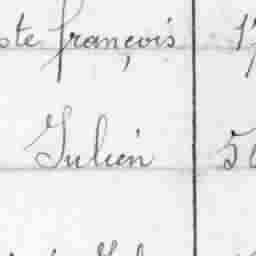 ste françois 17
Julien 50